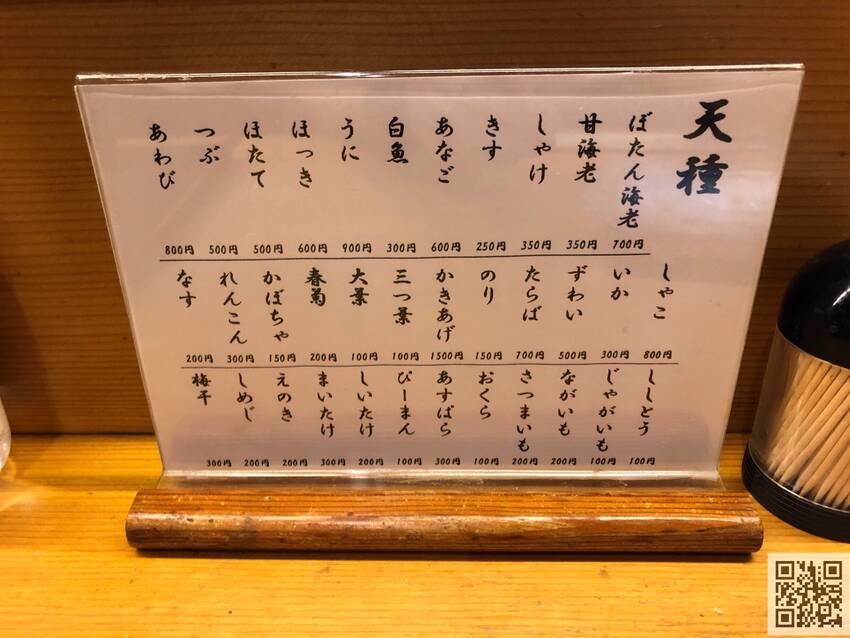 天種
ぼたん海老 700円
甘海老 350円
しゃけ 350円
きす 250円
あなご 600円
白魚 300円
うに 900円
ほっき 600円
ほたて 500円
つぶ 500円
あわび 800円
しゃこ 800円
いか 300円
ずわい 500円
たらば 700円
のり 150円
かきあげ 1500円
三つ葉 100円
大葉 100円
春菊 200円
かぼちゃ 150円
れんこん 300円
なす 200円
ししとう 100円
じゃがいも 100円
ながいも 200円
さつまいも 200円
おくら 100円
あすぱら 300円
ぴーまん 100円
しいたけ 200円
まいたけ 300円
えのき 200円
しめじ 200円
梅干 300円